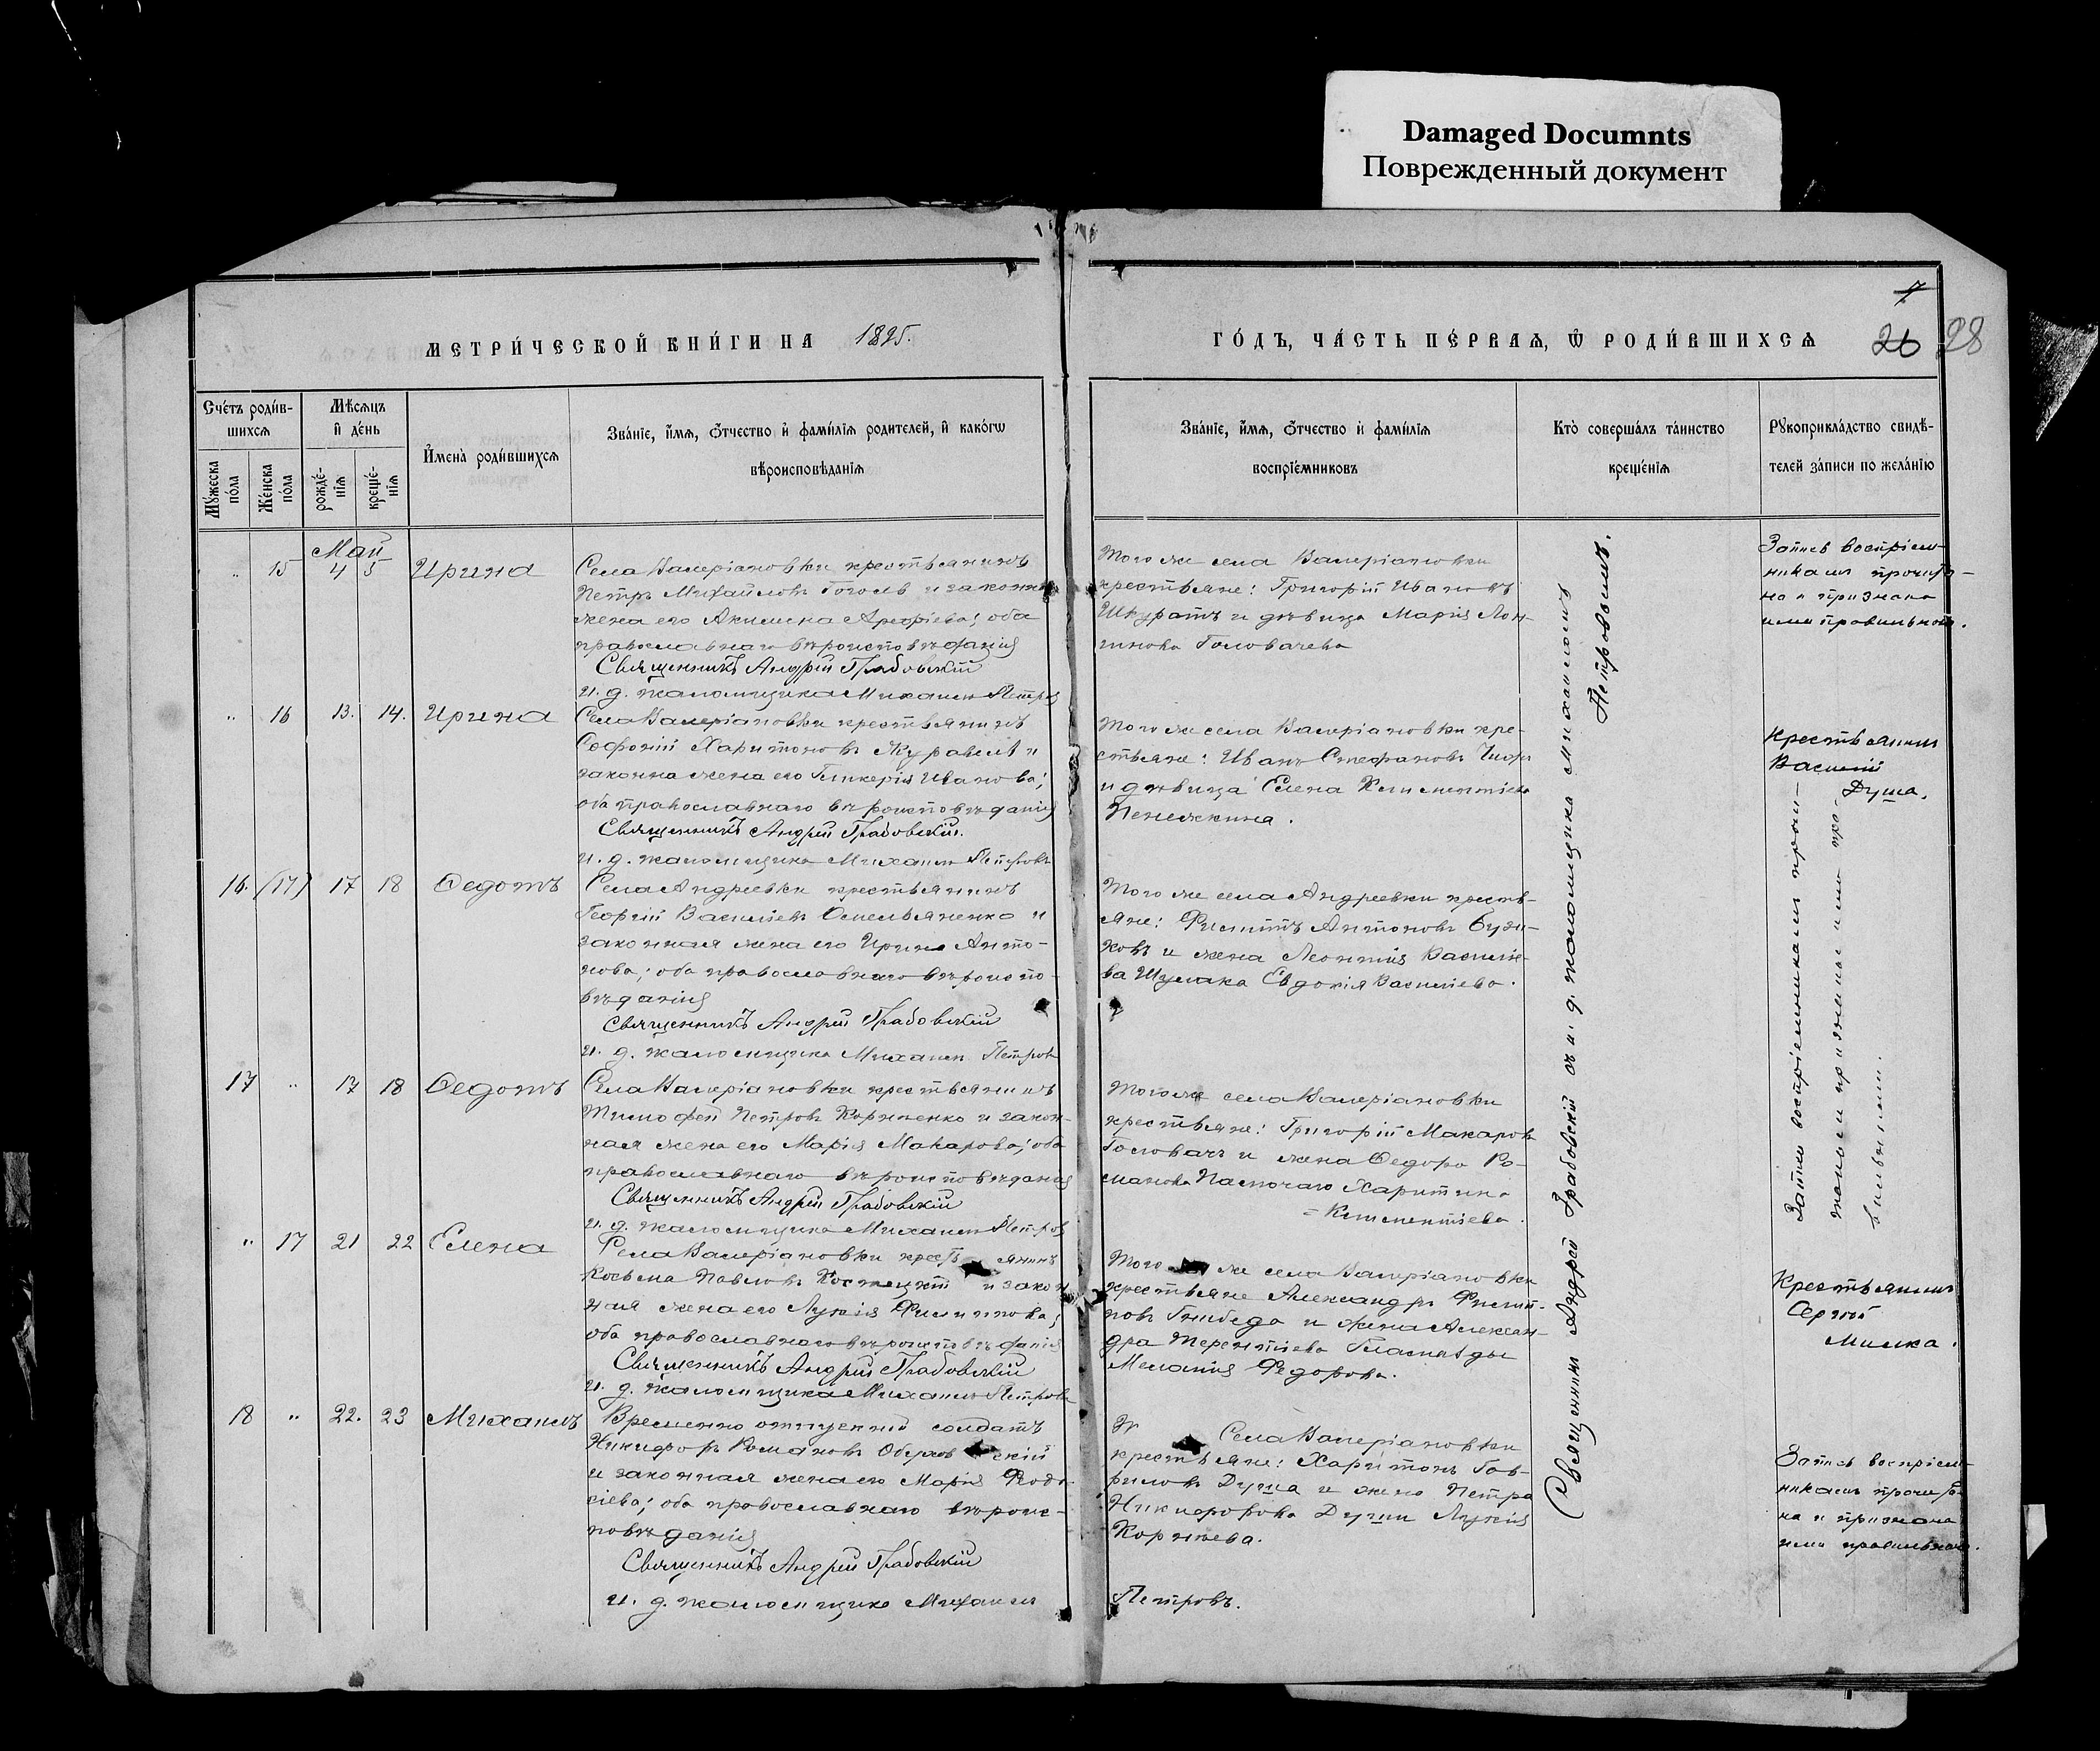 Damaged Documnts
Поврежденный документ
7
МЕТРИ́ЧЕСКОЙ КНИ́ГИ НА 1895.
ГО́ДЪ, ЧА́СТЬ ПЕ́РВАѦ, Ѿ РОДИ́ВШИХСѦ
26 28
Сче́тъ роди́в-
шихсѧ
Мѣ́сѧцъ
и҆ де́нь
И҆мена̀ роди́вшихсѧ
Зва́нїе, и҆́мѧ, ѻ҆́тчество и҆ фами́лїѧ родителей, и҆ како́гѡ
вѣроисповѣ́данїѧ
Мꙋ́жеска
по́ла
Же́нска
по́ла
рожде́-
нїѧ
креще́-
нїѧ
Зва́нїе, и҆́мѧ, ѻ҆́тчество и҆ фами́лїѧ
воспрїе́мниковъ
Кто̀ соверша́лъ та́инство
креще́нїѧ
Рꙋкоприкла́дство свидѣ́-
телей за́писи по жела́нїю
Май
" 15 4 5 Ирина
Села Валеріановки крестьянинъ
Петръ Михайловъ Гоголь и законна
жена его Акилина ; оба
православнаго вѣроисповѣданія
Священникъ Андрій Грабовскій
и. д. псаломщика Михаилъ Петровъ
Того же села Валеріановки
крестьяне: Григорій Ивановъ
Шкуратъ и дѣвица Марія Лон-
гинова Головачева
Запись воспріем-
никам прочита-
на и признана
ими правильной.
" 16 13. 14. Ирина
Села Валеріановки крестьянинъ
Софоній Харитоновъ Журавель и
законна жена его Гликерія Иванова;
оба православнаго вѣроисповѣданія
Священникъ Андрій Грабовскій.
и. д. псаломщика Михаилъ Петровъ
Того же села Валеріановки кре-
стьяне: Иванъ Стефановъ
и дѣвица Елена Климентіева
Пенежкина.
Крестьянин
Василій
Душа.
16. (17) 17 18 Ѳедотъ
Села Андреевки крестьянинъ
Георгій Васильевъ Омельяненко и
законная жена его Ирина Анто-
нова; оба православнаго вѣроиспо-
вѣданія
Священникъ Андрій Грабовскій
и. д. псаломщика Михаилъ Петровъ
Того же села Андреевки кресть-
яне: Филиппъ Антоновъ
и жена Леонтія Василіе-
ва Шулака Евдокія Василіева.
17 " 17 18 Ѳедотъ
Села Валеріановки крестьянинъ
Тимофей Петровъ Корниенко и закон-
ная жена его Марія Макарова; оба
православнаго вѣроисповѣданія
Священникъ Андрій Грабовскій
и. д. псаломщика Михаилъ Петровъ
Того же села Валеріановки
крестьяне: Григорій Макаровъ
Головачъ и жена Ѳедора Ро-
манова Харитина
Климентіева.
" 17 21 22 Елена
Села Валеріановки крестьянинъ
Косьма Павловъ и закон
ная жена его Лукія Филиппова;
оба православнаго вѣроисповѣданія
Священникъ Андрій Грабовскій
и. д. псаломщика Михаилъ Петровъ
Того же села Валеріановки
крестьяне Александръ Филип-
повъ Гнибеда и жена Алексан-
дра Терентіева
Меланія Федорова.
Крестьянин
Сергій
Милка.
18 " 22. 23 Михаилъ
Временно отпускной солдатъ
Никифоръ Романовъ
и законная жена его Марія Феодо-
сіева; оба православнаго вѣроис-
повѣданія
Священникъ Андрій Грабовскій
и. д. псаломщика Михаилъ Петровъ.
Села Валеріановки
крестьяне: Харитонъ Гав-
риловъ Душа и жена Петра
Никифорова Души Лукія
Корнѣева.
Запись воспріем-
никам прочита-
на и признана
ими правильной.
Священник Андрей Грабовскій съ и. д. псаломщика Михаиломъ
Петровымъ.